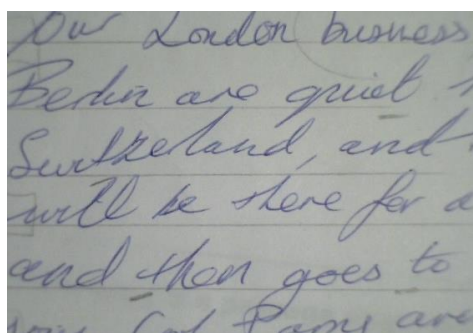 Our London business
Berlin are quiet
Switzerland, and
will be there for a
and then goes to
are